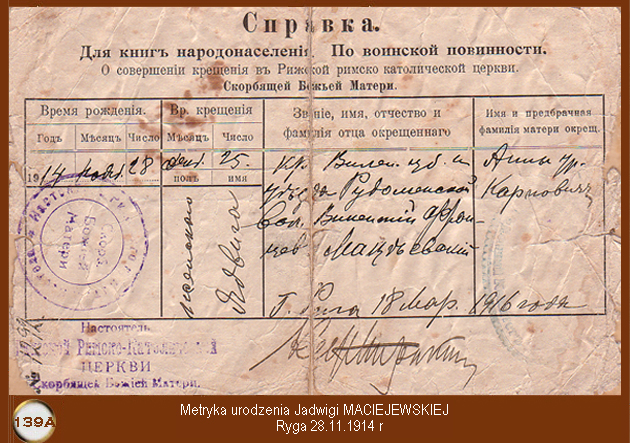 Справка.
Для книгъ народонаселенія. По воинской повинности.
О совершеніи крещенія въ Рижской римско католической церкви.
Скорбящей Божьей Матери.
Время рожденія. Вр. крещенія Званіе, имя, отчество и фамилія отца окрещеннаго Имя и предбрачная фамилія матери окрещ.
Годъ Мѣсяцъ Число Мѣсяцъ Число
1914 нояб. 28 дек. 25.
полъ имя
женского Ядвига
Кр. Вилен. губ. и
уѣзда Рудоминской
вол. Викентій Фран-
цев. Мацѣевскій
Анны ур.
Карповичъ
Г. Рига 18 Мар. 1916 года
Скорб.
Божьей
Матери
Настоятель
Римско-Католической
ЦЕРКВИ
Скорбящей Божіей Матери.
№
139A
Metryka urodzenia Jadwigi MACIEJEWSKIEJ
Ryga 28.11.1914 r